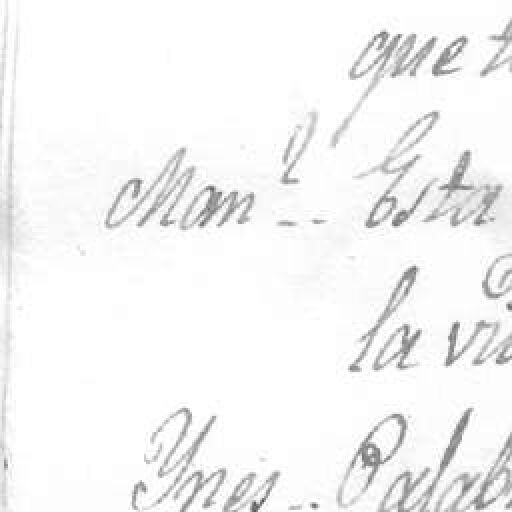 que t
Man.l -- Esta
la vi
Ynés -- Palab